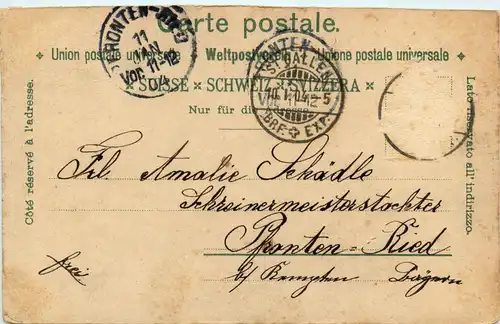 Carte postale.
Union postale universelle Weltpostverein Unione postale universale
SUISSE × SCHWEIZ × SVIZZERA
Nur für die
Côté réservé à l'adresse.
Lato riservato all'indirizzo.
PRONTEN-RIED
11
JAN
VOR 11-12
04
ST. GALLEN
10.I.04.-5
BRF. EXP.
Frl Amalie Schädle
Schreinermeisterstochter
Pfronten-Ried
b/ Kempten Bayern
frei